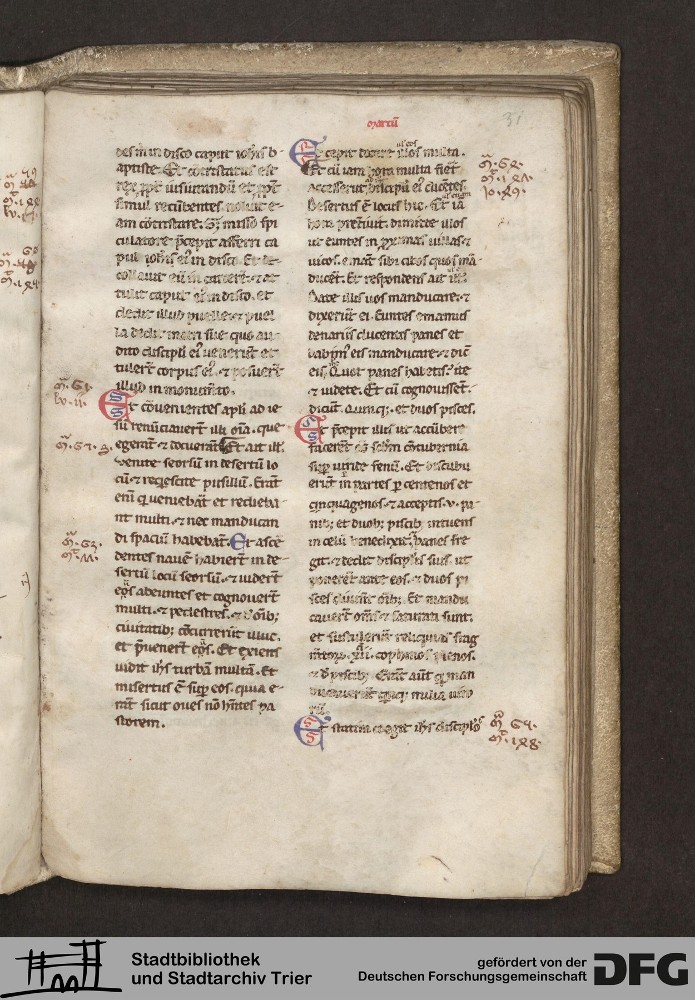 marcu
31
des in disco caput ioh̄is b
aptiste. Et cōtristatus est
rex ꝓpt̄ iusiurandū et ꝓpt̄
simul recūbentes noluit e-
am cōtristare. S; misso spi
culatore p̄cepit afferri ca
put ioh̄is ei in disco. Et de-
collauit eū in carcere. ⁊ at
tulit caput ei in disco. et
dedit illud puelle. ⁊ puel
la dedit matri sue quo au-
dito discipli ei uenerūt et
tulert̄ corpus ei. ⁊ posuert̄
illud in monumēto.
Et cōuenientes apli ad ie
su renūciauert̄ illi oīa. que
egerant ⁊ docuerāt. Et ait illi.
venite seorsū in desertū lo
cū. ⁊ reqescite pusillū. Erāt
eni q ueniebāt et rediebā-
nt multi. ⁊ nec manducan
di spaciū habebāt. Et ascē
dentes nauē habiert̄ in de-
sertū locū seorsū. ⁊ uidert̄
eos abeuntes et cognouert̄
multi. ⁊ pedestres. ⁊ d oīb;
ciuitatib; cōcurrerūt illuc.
et p̄uenert̄ eos. Et exiens
uidit ih̄s turbā multā. Et
misertus ē sup eos. quia e-
rāt sicut oues nō hn̄tes pa
storem.
Et cepit docere illos multa.
Et cū iam hora multa fieret
Accesserūt discipuli ei dicētes
Desertus ē locus hic. Et iā
hora pret̄iuit. dimitte illos
ut euntes in ꝓximas uillas ⁊
uicos. emāt sibi cibos quos mā
ducēt. Et respondens ait illis.
Date illis uos manducare. ⁊
dixerūt ei. Euntes emamus
denariis ducentis panes et
dabim eis manducare. ⁊ dic̄
eis. Quot panes habetis. ite
⁊ uidete. Et cū cognouisset.
dicūt. Quinq;. et duos pisces.
Et p̄cepit illis ut accūbere
facerēt os scdm cōtubernia
sup uiride fenū. Et discubu
erūt in partes p centenos et
qinquagenos. ⁊ acceptis .v. pa-
nib; et duob; piscib; intuens
in celū benedixit. panes fre
git. ⁊ dedit disciplis suis. ut
ponerēt ante eos. ⁊ duos pi
sces diuisit oīb;. Et mandu
cauert̄ om̄s ⁊ saturati sunt.
et sustulerūt reliquias frag
mtorꝫ .xii. cophinos plenos.
⁊ d piscib;. Erāt aut qi man
ducauerūt qinq; milia uiro
rū.
Et statim coegit ih̄s disciplos
Stadtbibliothek
und Stadtarchiv Trier
gefördert von der
Deutschen Forschungsgemeinschaft
DFG